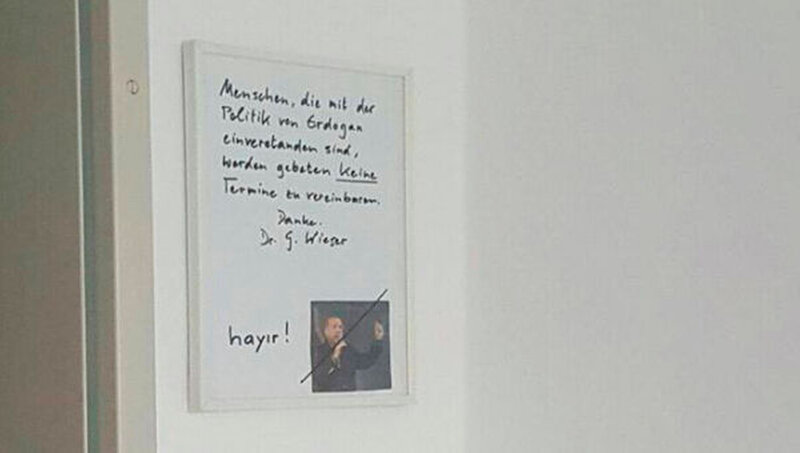 Menschen, die mit der
Politik von Erdogan
einverstanden sind,
werden gebeten keine
Termine zu vereinbaren.
Danke.
Dr. G. Wieser
hayır!